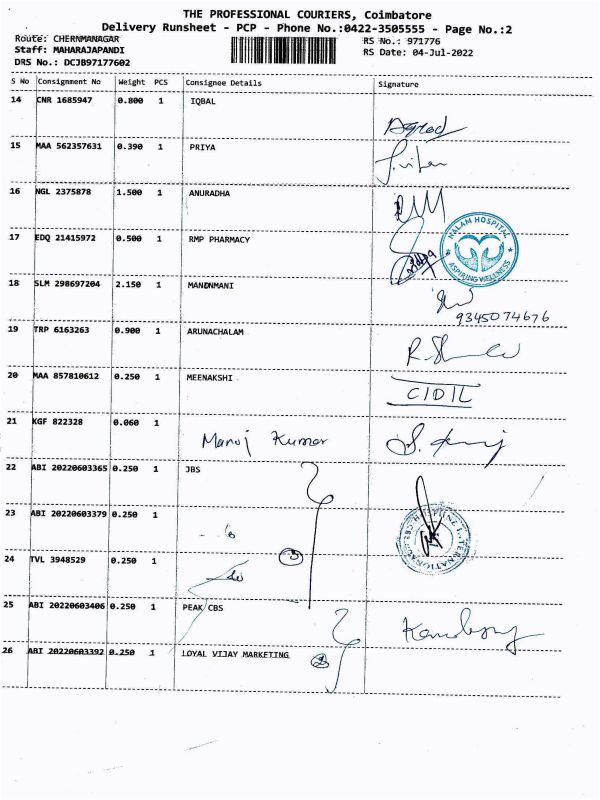 THE PROFESSIONAL COURIERS, Coimbatore
Delivery Runsheet - PCP - Phone No.:0422-3505555 - Page No.:2
Route: CHERNMANAGAR
RS No.: 971776
Staff: MAHARAJAPANDI
RS Date: 04-Jul-2022
DRS No.: DCJB97177602
S No Consignment No Weight PCS Consignee Details Signature
14 CNR 1685947 0.800 1 IQBAL
15 MAA 562357631 0.390 1 PRIYA
16 NGL 2375878 1.500 1 ANURADHA
NALAM HOSPITAL
17 EDQ 21415972 0.500 1 RMP PHARMACY
ASPIRING WELLNESS
18 SLM 298697204 2.150 1 MANONMANI
9345074676
19 TRP 6163263 0.900 1 ARUNACHALAM
20 MAA 857810612 0.250 1 MEENAKSHI
CIDIL
21 KGF 822328 0.060 1
Manoj Kumar
22 ABI 20220603365 0.250 1 JBS
23 ABI 20220603379 0.250 1
24 TVL 3948529 0.250 1
25 ABI 20220603406 0.250 1 PEAK CBS
26 ABI 20220603392 0.250 1 LOYAL VIJAY MARKETING